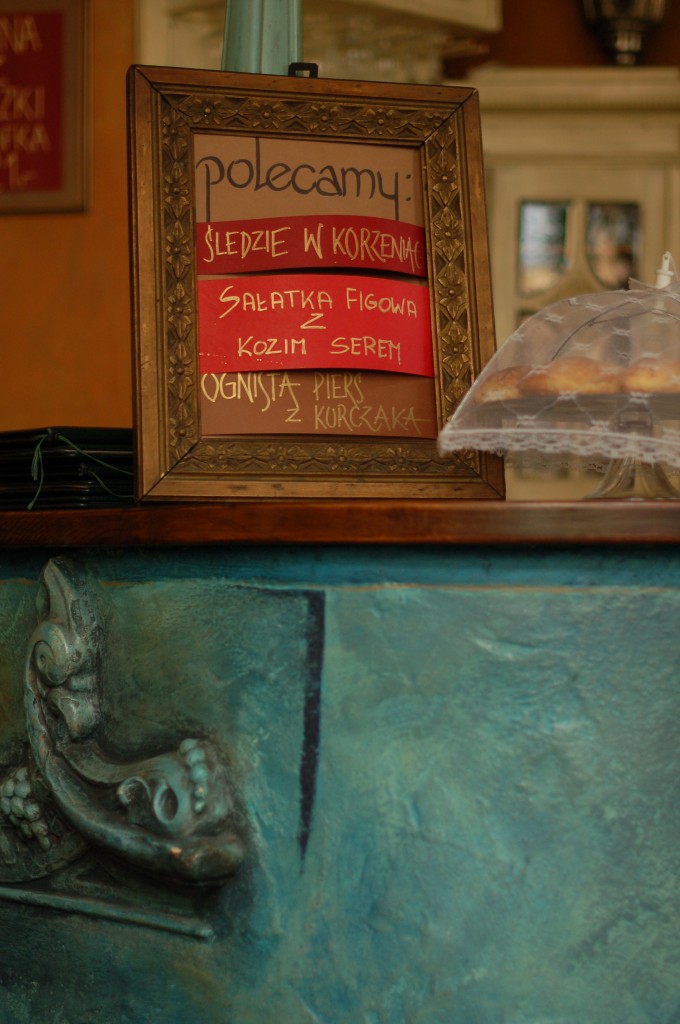 NA
ŻKI
KA
polecamy:
ŚLEDZIE W KORZENIAC
SAŁATKA FIGOWA
Z
KOZIM SEREM
OGNISTA PIERŚ
Z KURCZAKA